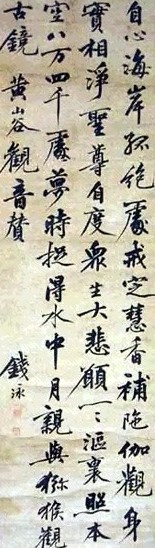 自心海岸孤絕處戒定慧香補陁伽觀身
實相淨聖尊自度眾生大悲願一一漚裏照本
空八万四千處夢時捉得水中月親與獼猴觀
古鏡 黃山谷觀音贊
錢泳